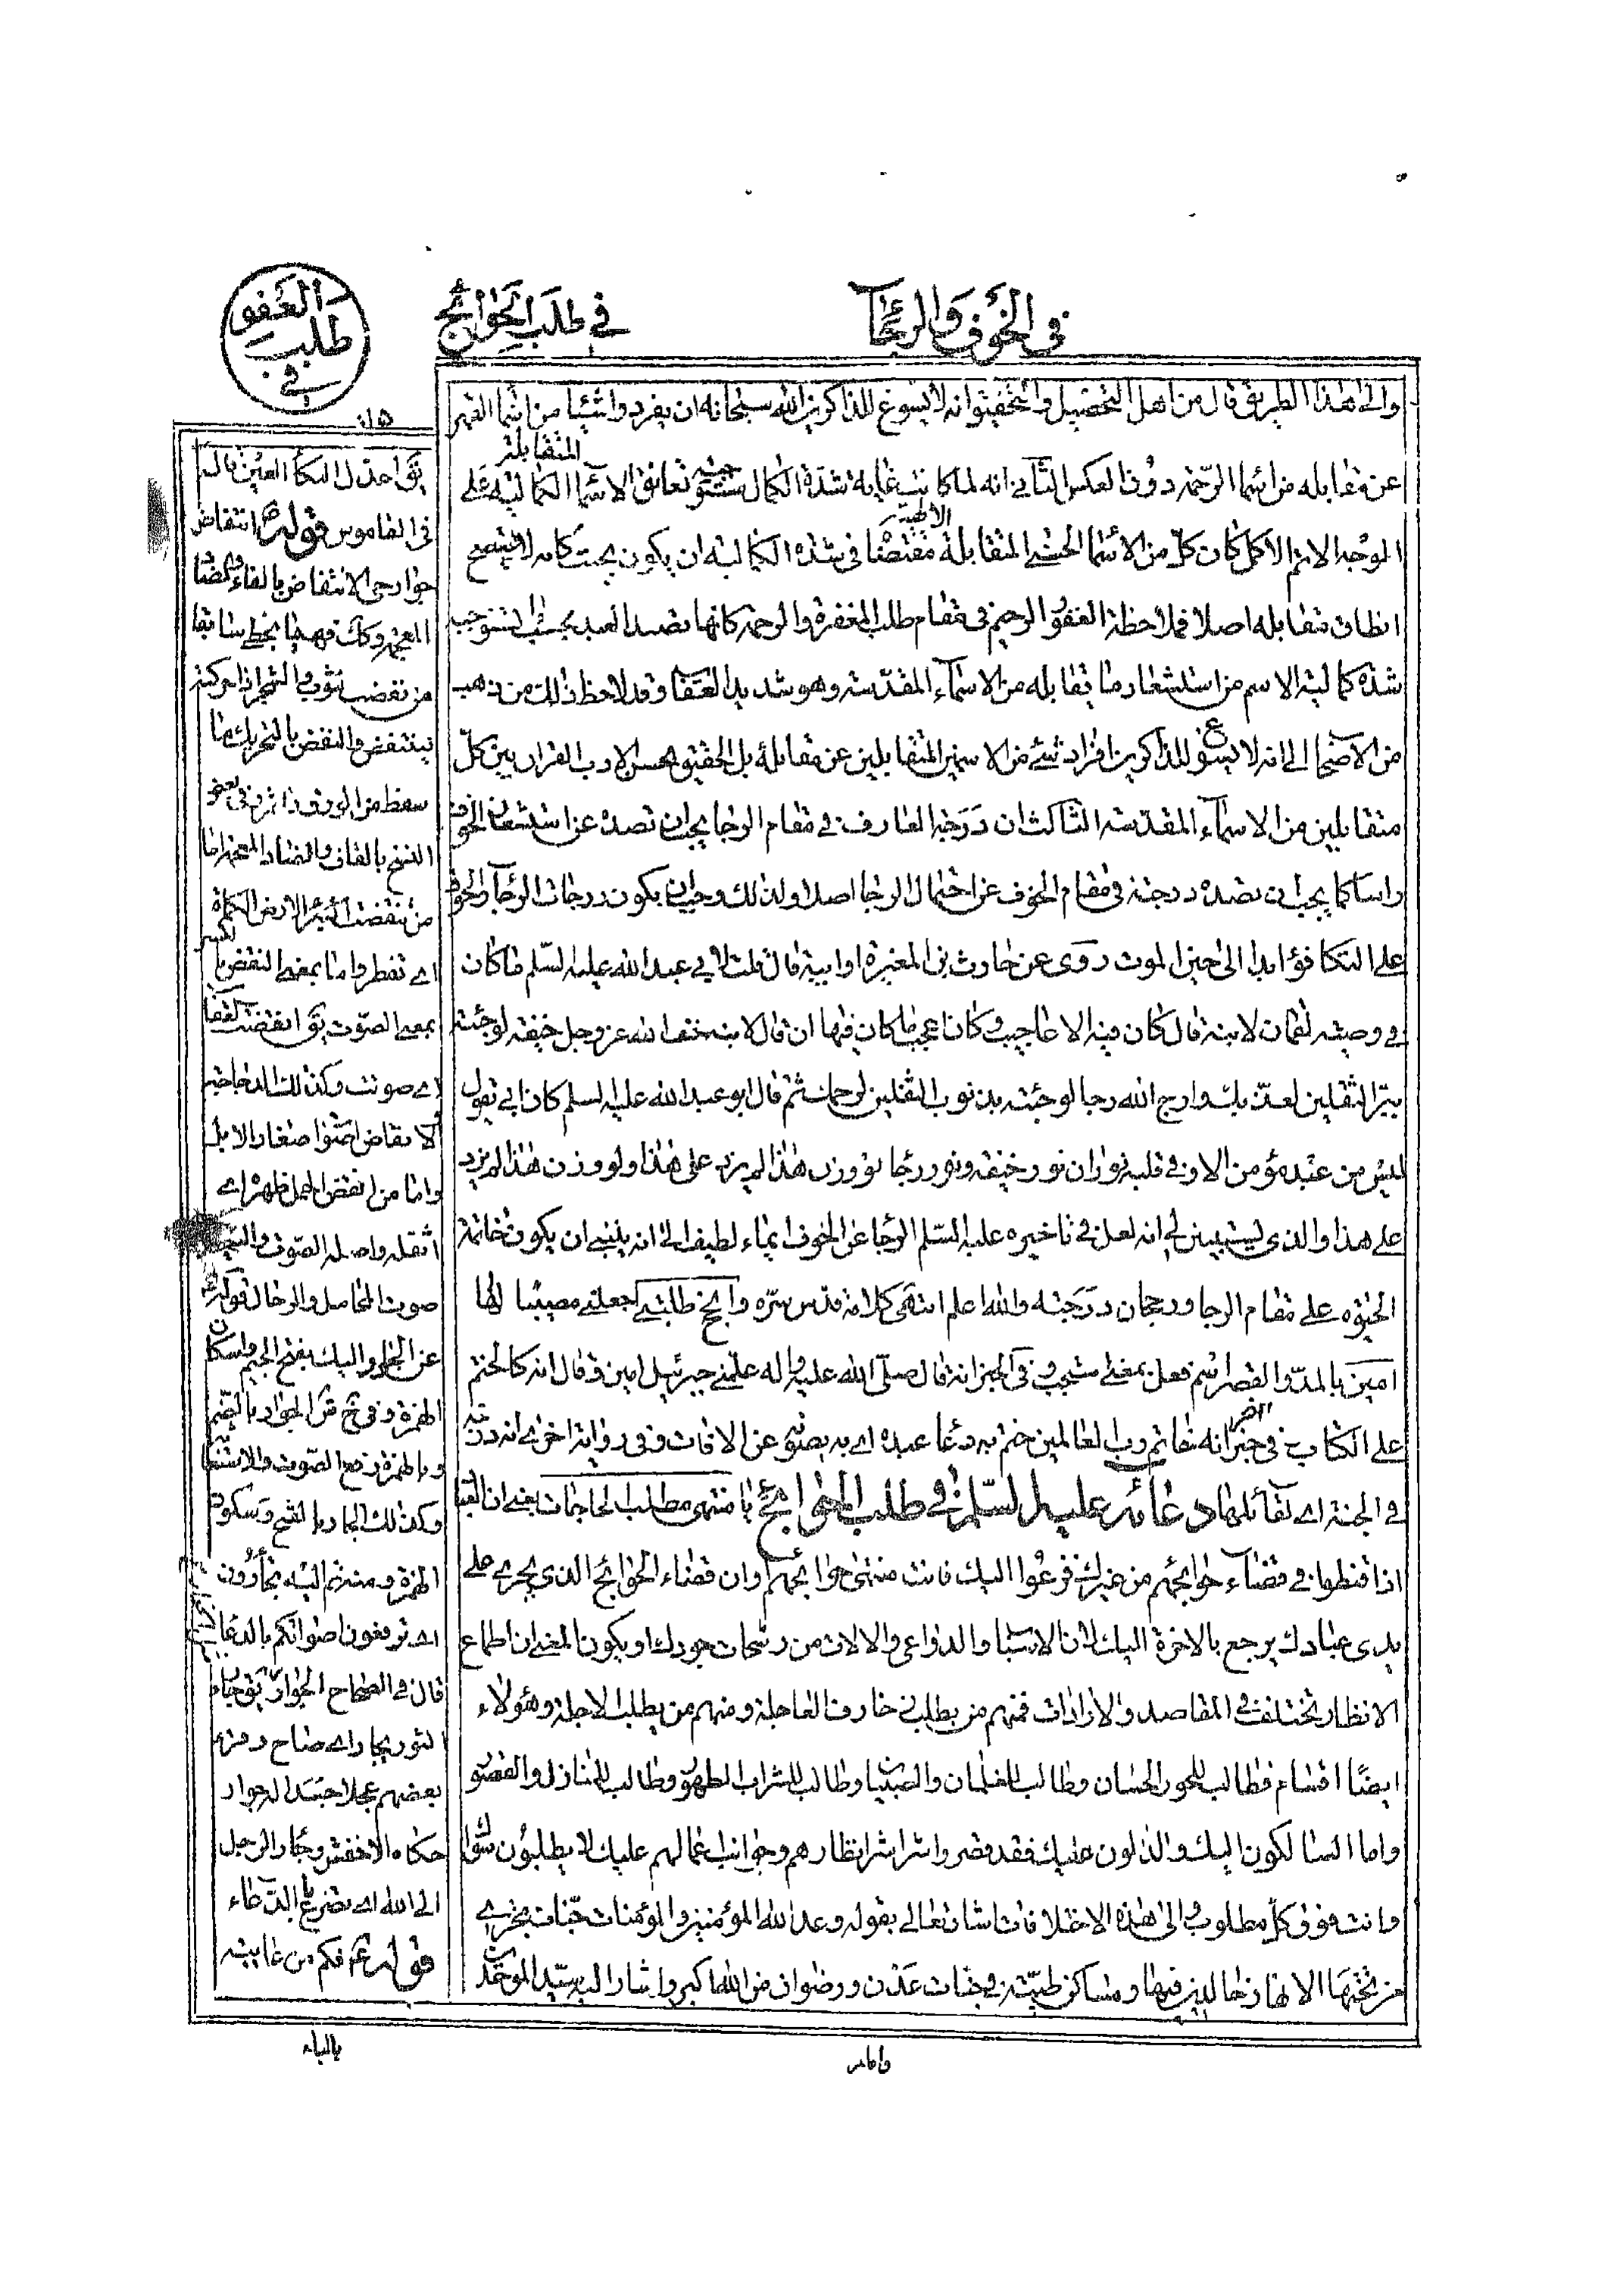 في الخوف والرجاء
في طلب الحوائج
في طلب العفو
والى هذا الطريق قال من اهل التحصيل والتحقيق انه لا يسوغ للذاكرين الله سبحانه ان يفردوا شيئا من اسماء القهر
عن مقابله من اسماء الرحمة دون العكس الثاني انه لما كانت غاية شدة الكمال تستوجب تعانق الاسماء الكمالية المتقابلة على
الوجه الاتم الاكمل كان كل من الاسماء الحسنى المتقابلة الالهية مقتضاها في شدة الكمالية ان يكون بحيث كانه لا يتصحح
انطلق متقابله اصلا فملاحظة الغفور الرحيم في مقام طلب المغفرة والرحمة كانها تصد العبد بحسب ما تستوجبه
شدة كمالية الاسم من استشعار ما يقابله من الاسماء المقدسة وهو شديد العقاب وقد لاحظ ذلك من ذهب
من الاصحاب الى انه لا يسوغ للذاكرين افراد شيء من الاسمين المتقابلين عن مقابله بل الحقيق بحسن الادب القران بين كل
متقابلين من الاسماء المقدسة الثالث ان درجة العارف في مقام الرجا يجب ان تصده عن استشعار الخوف
راسا كما يجب ان تصده درجته في مقام الخوف عن احتمال الرجا اصلا ولذلك وجب ان يكون درجات الرجاء والخوف
على التكافؤ ابدا الى حين الموت روى عن حارث بن المغيرة او ابيه قال قلت لابي عبد الله عليه السلم ما كان
في وصية لقمان لابنه قال كان فيه الاعاجيب وكان اعجب ما كان فيها ان قال لابنه خف الله عز وجل خيفة لو جئته
ببر الثقلين لعذبك وارج الله رجا لو جئته بذنوب الثقلين لرحمك ثم قال ابو عبد الله عليه السلم كان ابي يقول
ليس من عبد مؤمن الا وفي قلبه نوران نور خيفة ونور رجا لو وزن هذا لم يزد على هذا ولو وزن هذا لم يزد
على هذا والذي يستبين لي انه لعل في تاخيره عليه السلم الرجا عن الخوف ايماء لطيف الى انه ينبغي ان يكون خاتمة
الحيوة على مقام الرجا ورجحان درجته والله اعلم انتهى كلامه قدس سره وانجح طلبتي اجعلني مصيبا لها
امين بالمد والقصر اسم فعل بمعنى استجب وفي الخبر انه قال صلى الله عليه واله علمني جبرئيل امين وقال انه كالختم
على الكتاب في خبر اخر انه خاتم رب العالمين ختم به دعا عبده اي به يصئن عن الافات وفي رواية اخرى انه درجة
في الجنة اي لقائلها دعائه عليه السلام في طلب الحوائج يا منتهى مطلب الحاجات يعني ان العباد
اذا قنطوا في قضاء حوائجهم من غيرك فزعوا اليك فانت منتهى حوائجهم او ان قضاء الحوائج الذي يجري على
يدي عبادك يرجع بالاخرة اليك لان الاسباب والدواعي والالات من رشحات جودك او يكون المعنى ان اطماع
الانظار تختلف في المقاصد والارادات فمنهم من يطلب زخارف العاجلة ومنهم من يطلب الاجلة وهؤلاء
ايضا اقسام فطالب للحور الحسان وطالب للغلمان والصبيان وطالب للشراب الطهور وطالب للمنازل والقصور
واما السالكون اليك والذالون عليك فقد قصروا اشراشر انظارهم وجوانب اعمالهم عليك لا يطلبون سواك
وانت فوق كل مطلوب والى هذه الاختلافات اشار تعالى بقوله وعد الله المؤمنين والمؤمنات جنات تجري
من تحتها الانهار خالدين فيها ومساكن طيبة في جنات عدن ورضوان من الله اكبر واشار اليه سيد الموحدين
في القاموس قوله انتفاض
جوارحي الانتفاض بالفاء والضاد
المعجمة
من نفضت الثوب والشجر اذا حركته
لينتفض والنفض بالتحريك ما
سقط من الورق والثمر وفي بعض
النسخ بالقاف والضاد المعجمة اما
اي تفطر واما بمعنى النقض
بمعنى الصوت
اي صوتت وكذلك الدجاجة
والانقاض اصوات صغار الابل
واما من انقض الحمل ظهره اي
اثقله واصله الصوت
صوت المحامل والرحال قوله
الهمزة
وبالهمزة رفع الصوت والاستغاثة
الهمزة ومنه ثم اليه تجأرون
اي ترفعون اصواتكم بالدعاء
قال في الصحاح الجؤار يق جأر
الثور يجار اي صاح وقرء
بعضهم عجلا جسدا له جوار
حكاه الاخفش وجأر الرجل
الى الله اي تضرع بالدعاء
قوله فكم من غائبة
بالباء
وامام